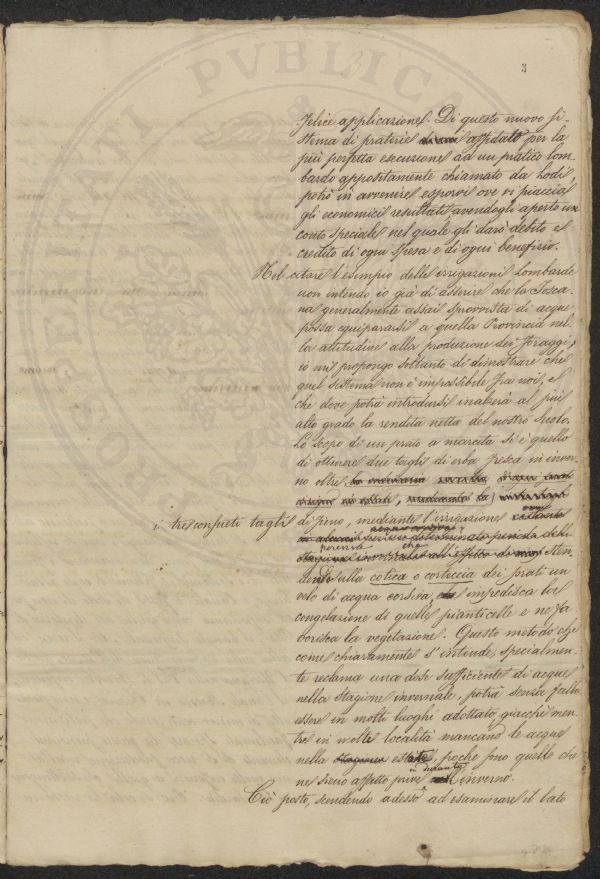 3
felice applicazione. Di questo nuovo si-
stema di praterie affidato per la
più perfetta esecuzione ad un pratico lom-
bardo appositamente chiamato da Lodi,
potrò in avvenire esporvi ove vi piaccia
gli economici resultati avendogli aperto un
conto speciale nel quale gli darò debito e
credito di ogni spesa e di ogni benefizio.
Nel citare l'esempio delle irrigazioni Lombarde
non intendo io già di asserire che la Tosca-
na generalmente assai sprovvista di acque
possa equipararsi a quella Provincia nel-
la attitudine alla produzione dei foraggi;
io mi propongo soltanto di dimostrare che
quel sistema non è impossibile fra noi, e
che dove potrà introdursi inalzerà al più
alto grado la rendita netta del nostro suolo.
Lo scopo di un prato a marcita si è quello
di ottenere due tagli di erba fresca in inver-
no oltre
i tre consueti tagli di fieno, mediante l'irrigazione
che
sulla cotica o corteccia dei prati un
velo di acqua corsiva, impedisca la
congelazione di quelle pianticelle e ne fa-
vorisca la vegetazione. Questo metodo che
come chiaramente s'intende, specialmen-
te reclama una dose sufficiente di acque
nella stagione invernale, potrà senza fallo
essere in molti luoghi adottato giacchè men-
tre in molte località mancano le acque
nella estate, poche sono quelle che
ne sieno affatto prive inverno.
Ciò posto, scendendo adesso ad esaminare il lato
PVBLICA